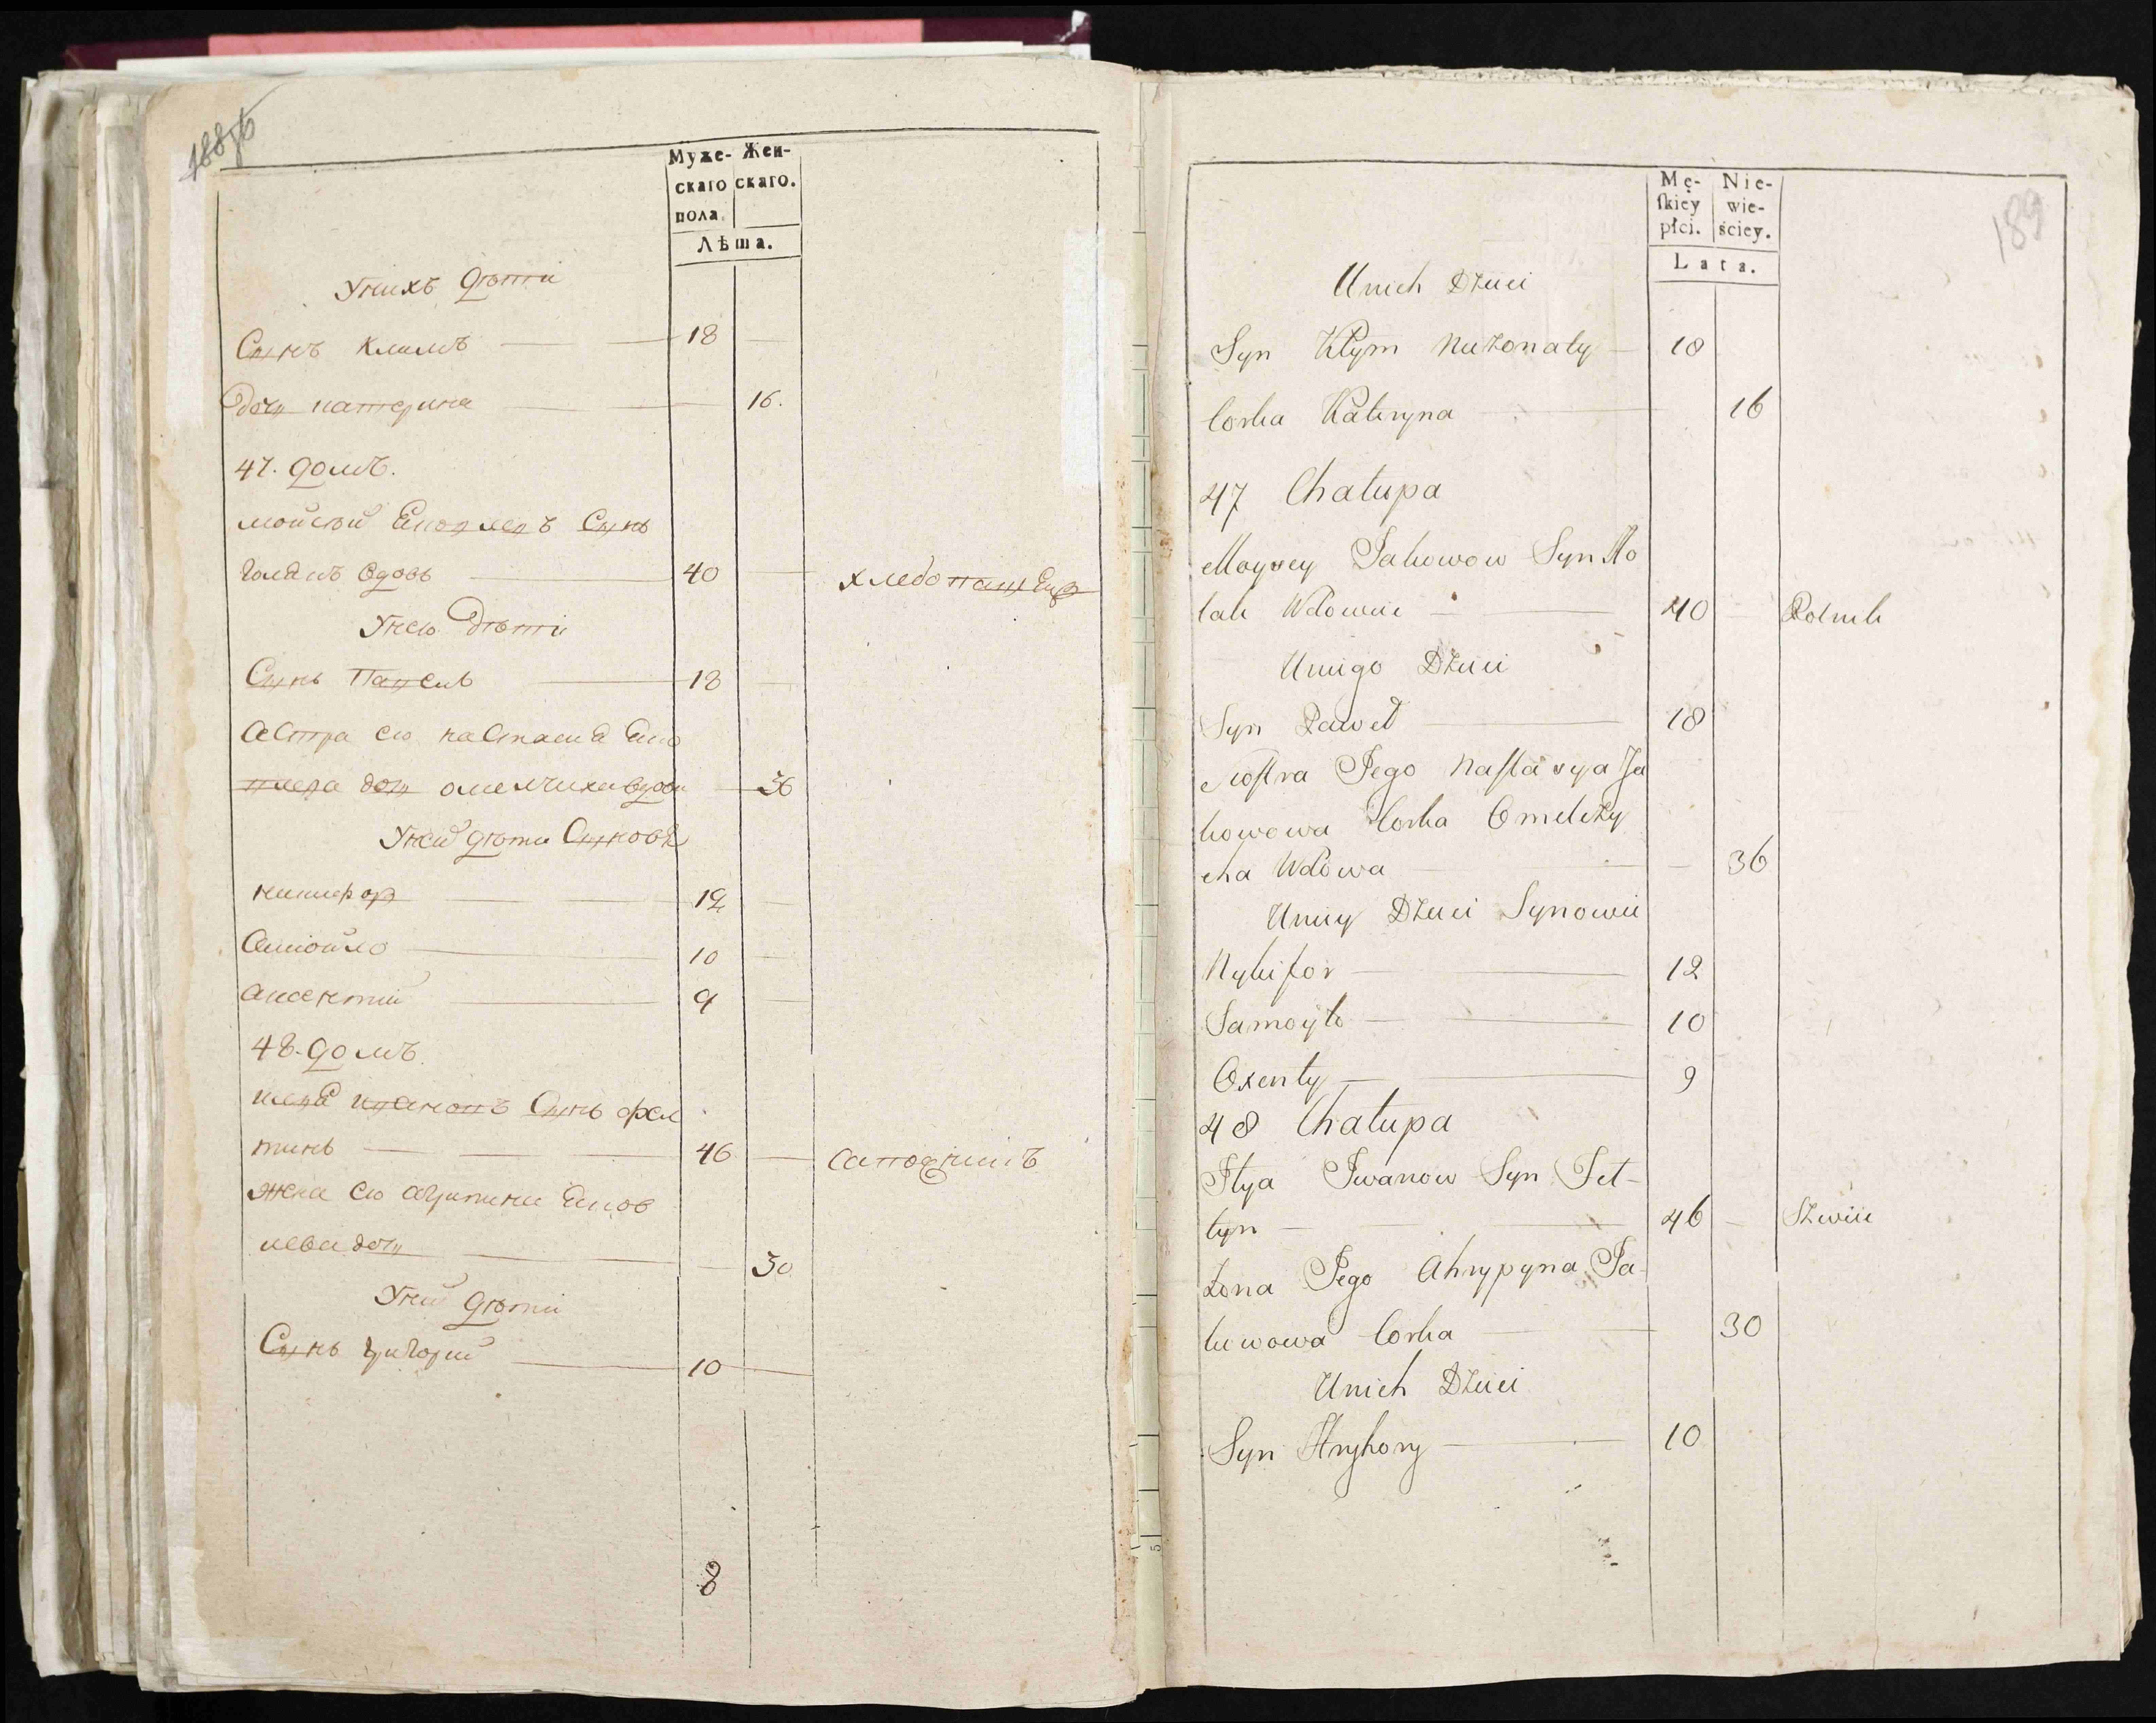 188об
Муже- Жен-
скаго скаго.
пола
Лѣта.
Унихъ дѣти
Сынъ Климъ 18
дочь катерина 16.
47. домъ.
мойсѣй Сынъ
вдовъ 40 хлебопашецъ
Унего дѣти
Сынъ Павелъ 18
Сестра его настасиа Яко
влева дочь омелчиха вдова 36
Уней дѣти Сыновя
никифор 12
Самойло 10
аксентий 9
48. домъ.
илея ивановъ Сынъ фел
тинъ 46 сапожникъ
жена его агрипина Яков
лева дочь 30
Уней дѣти
Сынъ григорий 10
8
189
Mę- Nie-
ſkiey wie-
płci. ściey.
Lata.
Unich Dzieci
Syn Kłym Niezonaty 18
Corka Kateryna 16
47 Chałupa
Moysey Jakowow Syn Ho
lak Wdowiec 40 Rolnik
Uniego Dzieci
Syn Paweł 18
Siostra Jego Nastasya Ja
kowowa Corka Omelczy
cha Wdowa 36
Uniey Dzieci Synowie
Nykifor 12
Samoyło 10
Oxenty 9
48 Chałupa
Jlya Jwanow Syn Fel-
tyn 46 Szwiec
Zona Jego Ahrypyna Ja-
kowowa Corka 30
Unich Dzieci
Syn Hryhory 10